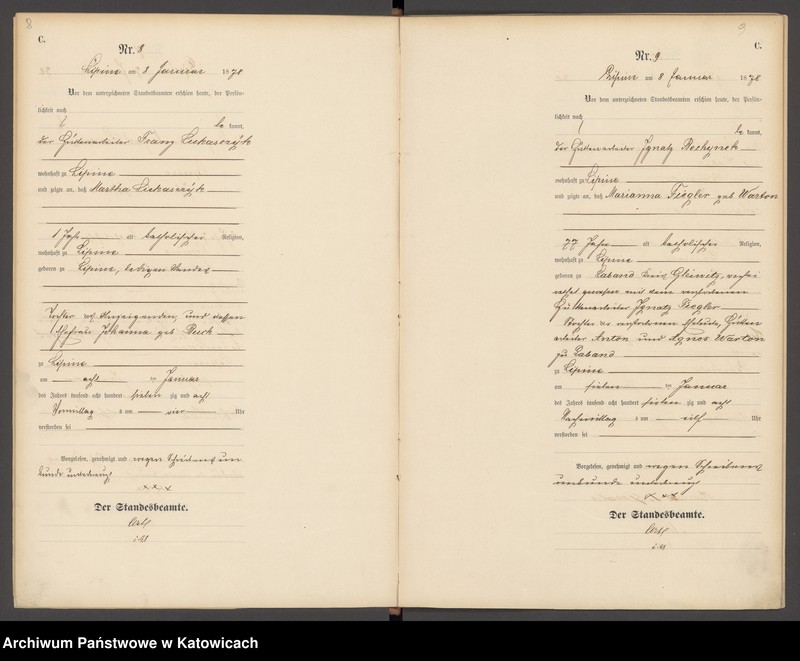 8
C.
Nr. 8
Lipine am 8 Januar 1878
Vor dem unterzeichneten Standesbeamten erschien heute, der Persön-
lichkeit nach
be kannt,
der Hüttenarbeiter Franz Lukasczÿk
wohnhaft zu Lipine
und zeigte an, daß Martha Lukasczÿk
1 Jahr alt katholischer Religion,
wohnhaft zu Lipine
geboren zu Lipine, ledigen Standes
Tochter des Anzeigenden, und dessen
Ehefrau Johanna geb
zu Lipine
am acht ten Januar
des Jahres tausend acht hundert sieben zig und acht
Vormittag s um vier Uhr
verstorben sei
Vorgelesen, genehmigt und wegen Schreibens un
kunde unterkreuzt
xxx
Der Standesbeamte.
9
C.
Nr. 9
Lipine am 8 Januar 1878
Vor dem unterzeichneten Standesbeamten erschien heute, der Persön-
lichkeit nach
be kannt,
der Hüttenarbeiter Ignatz Rechynek
wohnhaft zu Lipine
und zeigte an, daß Marianna Fiegler geb Warton
77 Jahre alt katholischer Religion,
wohnhaft zu Lipine
geboren zu Laband Kreis Gleiwitz, verhei
rathet gewesen mit dem verstorbenen
Hüttenarbeiter Ignatz Fiegler
Tochter der verstorbenen Eheleute, Hütten
arbeiter Anton und Agnes Warton
zu Laband
zu Lipine
am sieben ten Januar
des Jahres tausend acht hundert sieben zig und acht
Nachmittag s um eilf Uhr
verstorben sei
Vorgelesen, genehmigt und wegen Schreibens
unkunde unterkreuzt
xxx
Der Standesbeamte.
Archiwum Państwowe w Katowicach